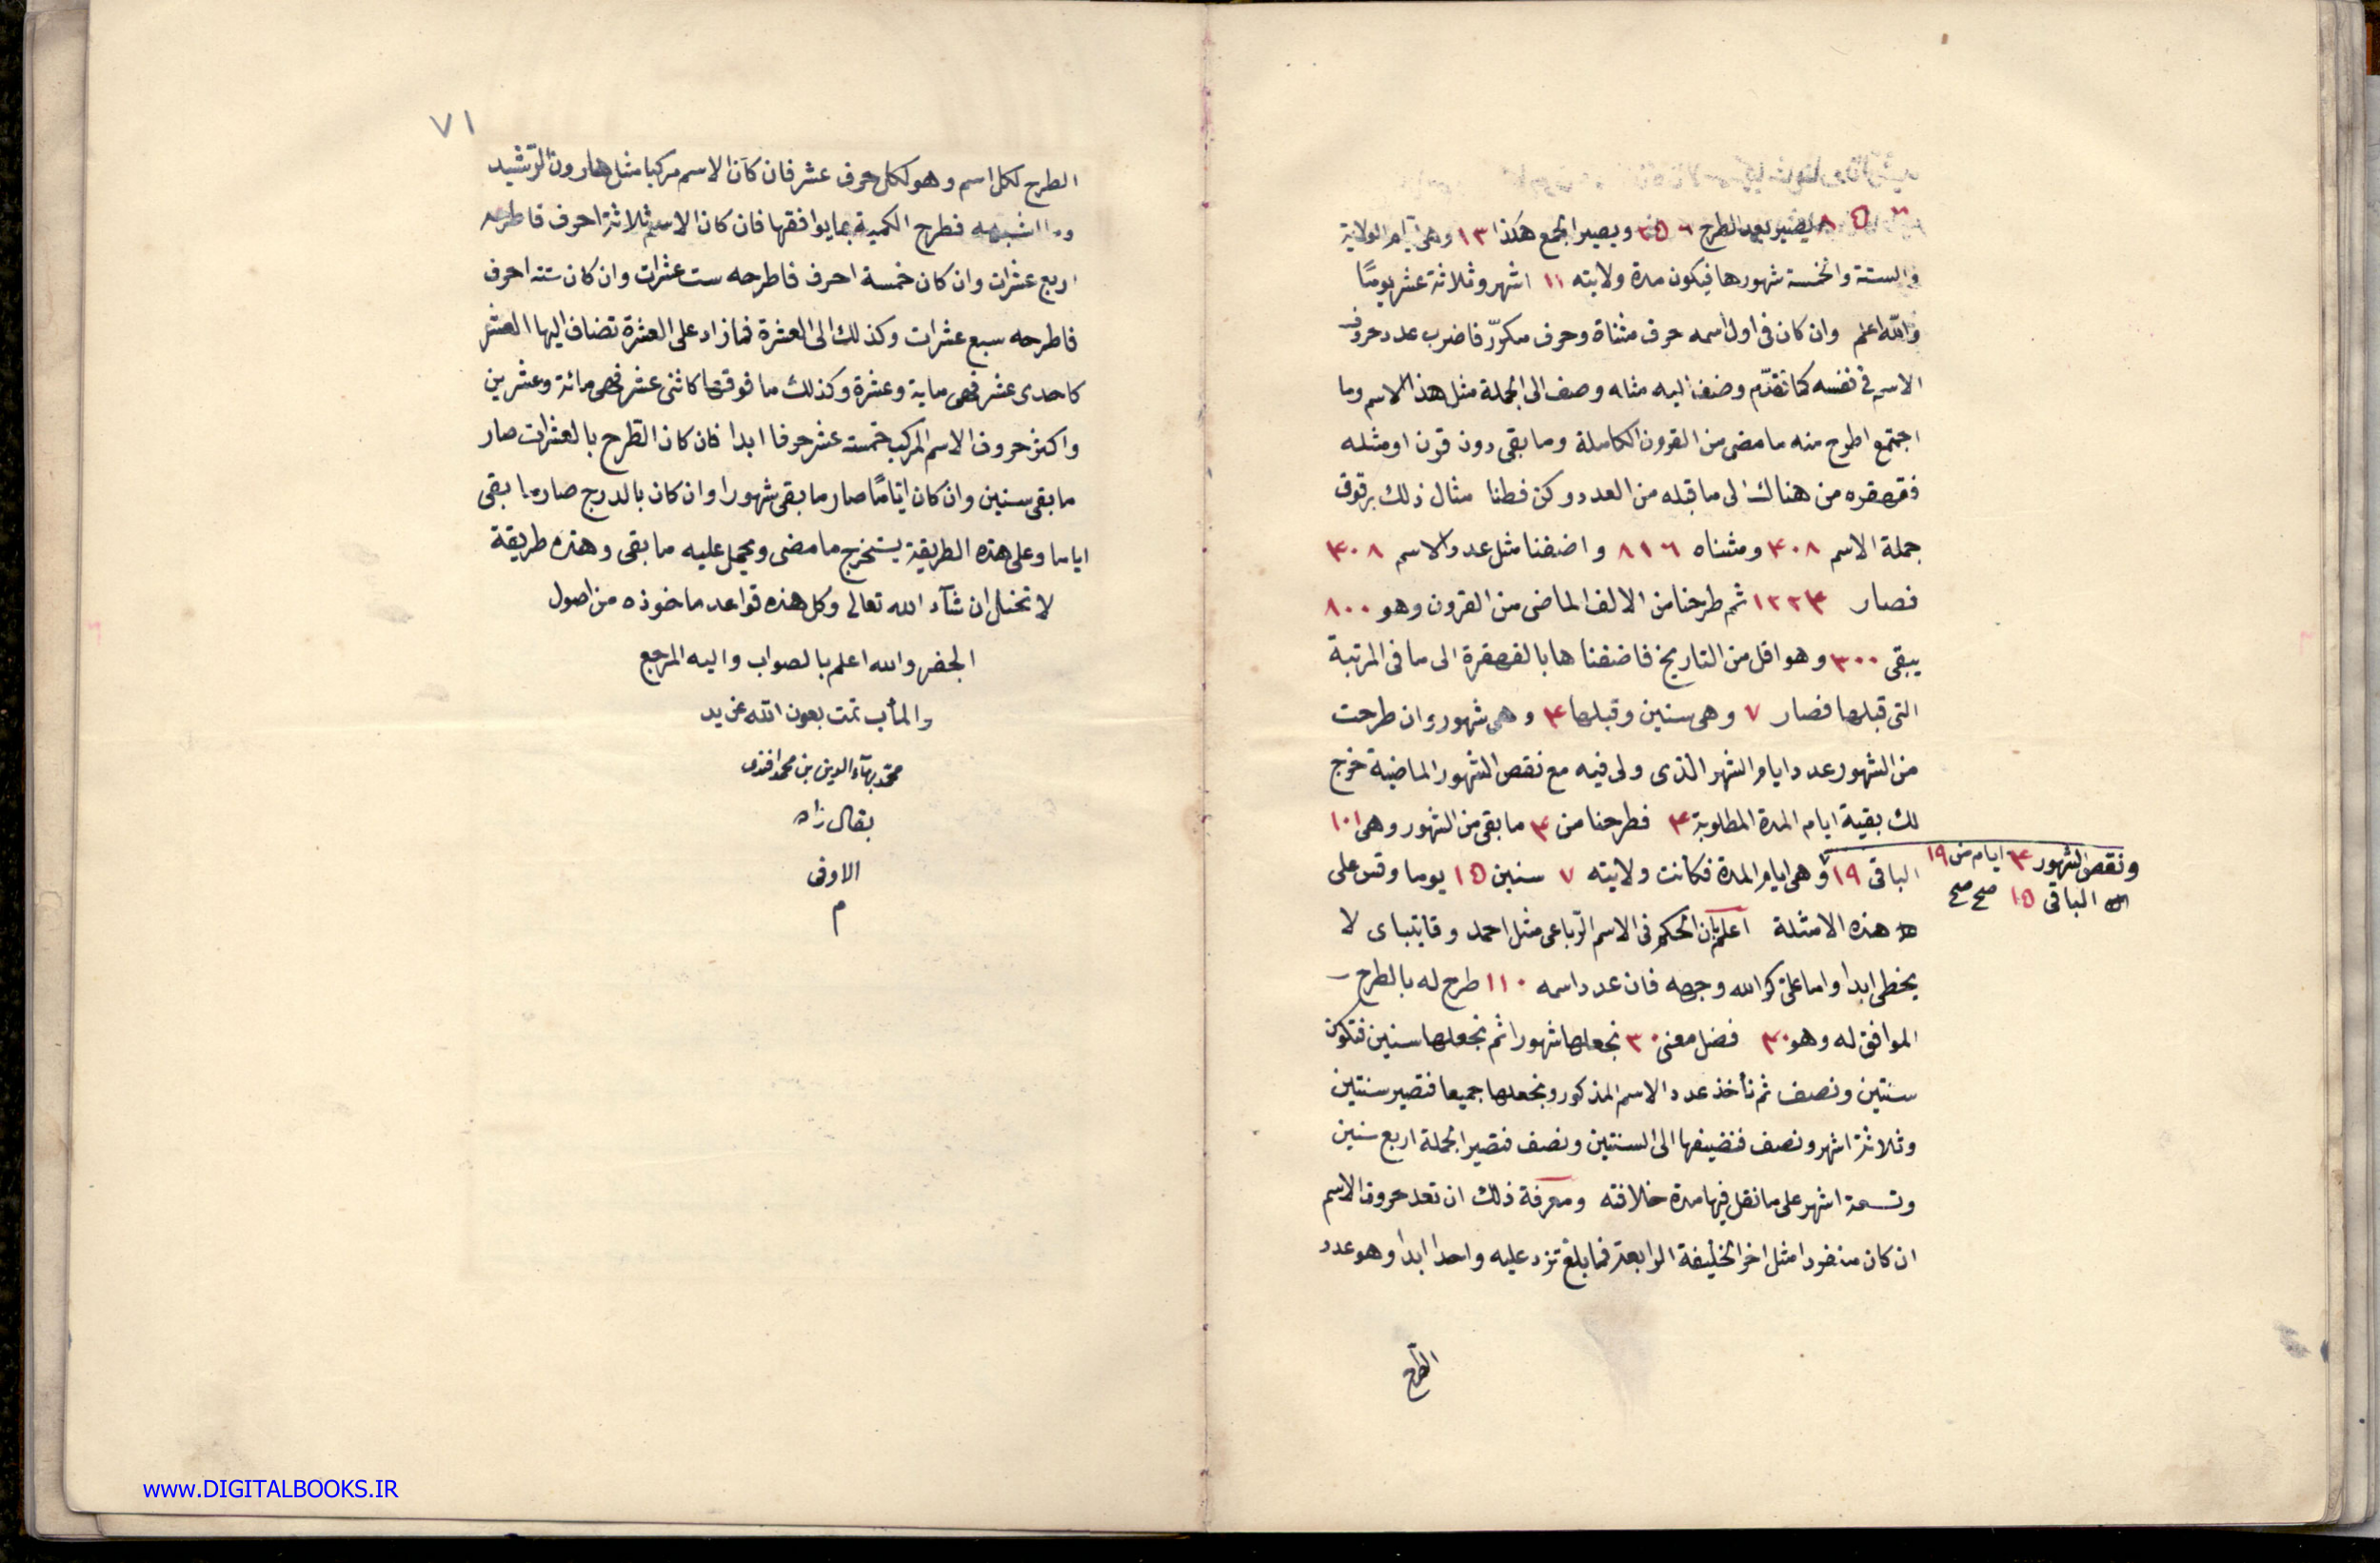 ٦ ٥ ٨ يصير بعد الطرح ٦ ٥ ٢ ويصير الجمع هكذا ١٣ وهى ايام الولاية
والستة والخمسة شهورها فيكون مدة ولايته ١١ اشهر وثلاثة عشر يومًا
والله اعلم وان كان فى اول اسمه حرف مثناة وحرف مكرّر فاضرب عدد حروف
الاسم فى نفسه كما تقدّم وضف اليه مثله وصف الى الجملة مثل هذا الاسم وما
اجتمع اطرح منه ما مضى من القرون الكاملة وما بقى دون قرن او مثله
فقهقره من هناك الى ما قبله من العدد وكن فطنا مثال ذلك برقوق
جملة الاسم ٤٠٨ ومثناه ٨١٦ واضفنا مثل عدد الاسم ٤٠٨
فصار ١٢٢٤ ثم طرحنا من الالف الماضى من القرون وهو ٨٠٠
يبقى ٤٠٠ وهو اقل من التاريخ فاضفنا ها بالقهقرة الى ما فى المرتبة
التى قبلها فصار ٧ وهى سنين وقبلها ٤ وهى شهور وان طرحت
من الشهور عدد ايام الشهر الذى ولى فيه مع نقص الشهور الماضية خرج
لك بقية ايام المدة المطلوبة ٤ فطرحنا من ٤ ما بقى من الشهور وهى ١٠١
الباقى ١٩ وهى ايام المدة فكانت ولايته ٧ سنين ١٥ يوما وقس على
ونقص الشهور ٤ ايام من ١٩
الباقى ١٥ صح صح
هذه الامثلة اعلم بان الحكم فى الاسم الرّباعى مثل احمد وقايتباى لا
يخطى ابدا واما على كرّ الله وجهه فان عدد اسمه ١١٠ طرح له بالطرح
الموافق له وهو ٤٠ فضل معنى ٣٠ نجعلها شهورا ثم نجعلها سنين فتكون
سنتين ونصف ثم نأخذ عدد الاسم المذكور ونجعلها جميعا فتصير سنتين
وثلاثة اشهر ونصف فنضيفها الى السنتين ونصف فتصير الجملة اربع سنين
وتسعة اشهر على ما نقل فيها مدة خلافته ومعرفة ذلك ان تعد حروف الاسم
ان كان منفردا مثل اخر الخليفة الرابعة فما بلغ تزد عليه واحدا ابدا وهو عدد
الطرح
٧١
الطرح لكل اسم وهو لكل حرف عشر فان كان الاسم مركبا مثل هارون الرّشيد
وما اشبهه فطرح الكمية بما يوافقها فان كان الاسم ثلاثة احرف فاطرحه
اربع عشرات وان كان خمسة احرف فاطرحه ست عشرات وان كان ستة احرف
فاطرحه سبع عشرات وكذلك الى العشرة فما زاد على العشرة تضاف اليها العشر
كاحدى عشر فهى ماية وعشرة وكذلك ما فوقها كاثنى عشر فهى مائة وعشرين
واكثر حروف الاسم المركب خمسة عشر حرفا ابدا فان كان الطرح بالعشرات صار
ما بقى سنين وان كان ايّامًا صار ما بقى شهورا وان كان بالدرج صار ما بقى
اياما وعلى هذه الطريقة يستخرج ما مضى ويحمل عليه ما بقى وهذه طريقة
لا تختل ان شآء الله تعالى وكل هذه قواعد ماخوذه من اصول
الجفر والله اعلم بالصواب واليه المرجع
والمأب تمت بعون الله عن يد
محمّد بهآء الدين بن محمد افندى
بقال زاده
الاوفى
م
www.DIGITALBOOKS.IR